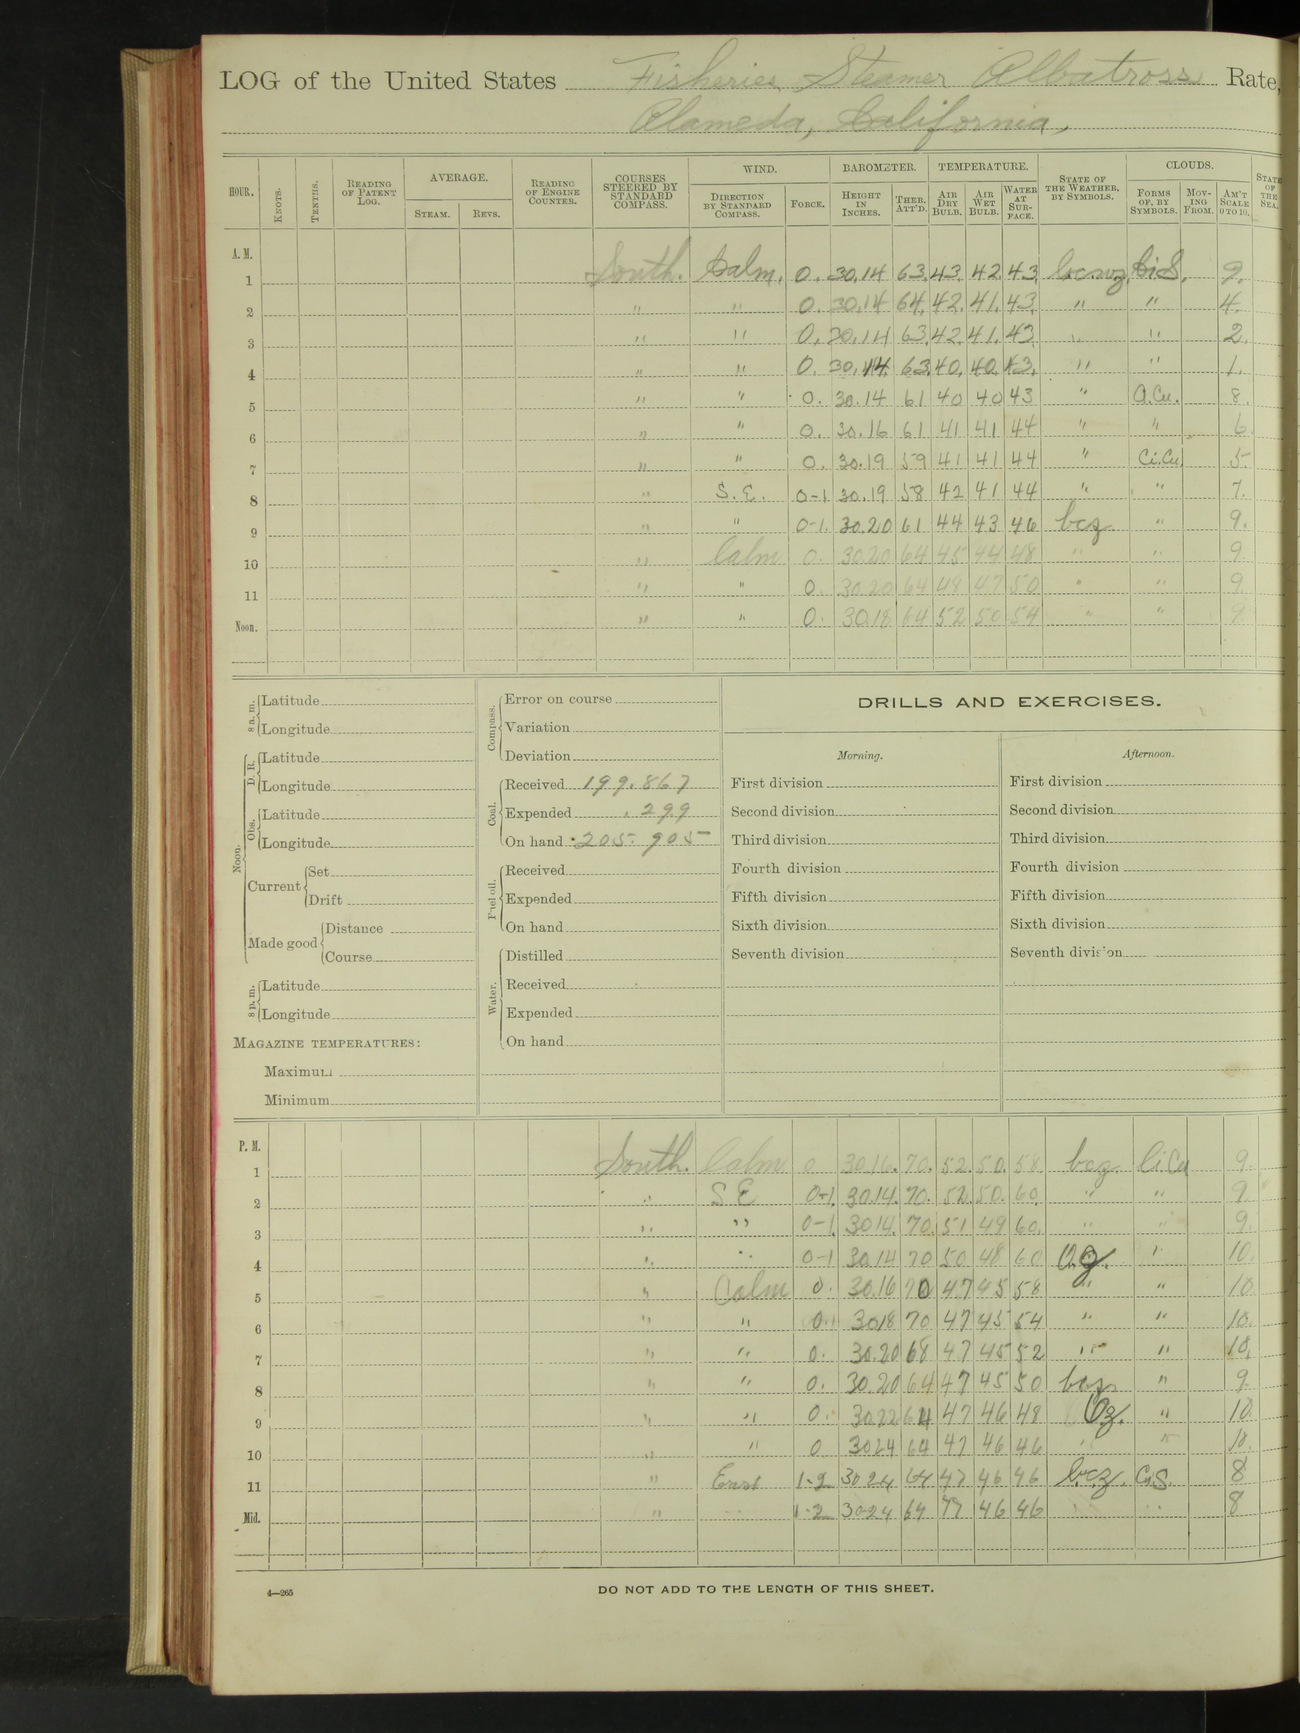 LOG of the United States Fisheries Steamer Albatross Rate,
Alameda, California,
HOUR. KNOTS. TENTHS. READING OF PATENT LOG. AVERAGE. STEAM. REVS. READING OF ENGINE COUNTER. COURSES STEERED BY STANDARD COMPASS. WIND. DIRECTION BY STANDARD COMPASS. FORCE. BAROMETER. HEIGHT IN INCHES. THER. ATT'D. TEMPERATURE. AIR DRY BULB. AIR WET BULB. WATER AT SURFACE. STATE OF THE WEATHER, BY SYMBOLS. CLOUDS. FORMS OF, BY SYMBOLS. MOVING FROM. AM'T SCALE 0 TO 10. STATE OF THE SEA.
A. M.
1 South. Calm. 0. 30.14 63. 43. 42. 43. Ci.S. 9.
2 " " 0. 30.14 64. 42. 41. 43. " " 4.
3 " " 0. 30.14 63. 42. 41. 43. " " 2.
4 " " 0. 30.14. 63. 40. 40. 43. " " 1.
5 " " 0. 30.14 61 40 40 43 " A.Cu. 8.
6 " " 0. 30.16 61 41 41 44 " " 6.
7 " " 0. 30.19 59 41 41 44 " Ci.Cu. 5.
8 " S.E. 0-1 30.19 58 42 41 44 " " 7.
9 " " 0-1. 30.20 61 44 43 46 bcz " 9.
10 " Calm 0. 30.20 64 45 44 48 " " 9.
11 " " 0. 30.20 64 48 47 50 " " 9.
Noon. " " 0. 30.18 64 52 50 54 " " 9.
8 a. m. Latitude
Longitude
Noon. D. R. Latitude
Longitude
Obs. Latitude
Longitude
Current Set
Drift
Made good Distance
Course
8 p. m. Latitude
Longitude
MAGAZINE TEMPERATURES:
Maximum
Minimum
Compass. Error on course
Variation
Deviation
Coal. Received 199.867
Expended .299
On hand 205.905
Fuel oil. Received
Expended
On hand
Water. Distilled
Received
Expended
On hand
DRILLS AND EXERCISES.
Morning.
First division
Second division
Third division
Fourth division
Fifth division
Sixth division
Seventh division
Afternoon.
First division
Second division
Third division
Fourth division
Fifth division
Sixth division
Seventh division
P. M.
1 South. Calm 0 30.16. 70. 52. 50. 58 bcz. Ci.Cu 9.
2 " S E 0-1. 30.14. 70. 52. 50. 60. " " 9.
3 " " 0-1. 30.14. 70. 51 49 60. " " 9.
4 " " 0-1 30.14 70 50 48 60 " 10.
5 " Calm 0. 30.16 70 47 45 58 " " 10.
6 " " 0. 30.18 70 47 45 54 " " 10.
7 " " 0. 30.20 68 47 45 52 " " 10.
8 " " 0. 30.20 64 47 45 50 bcz " 9.
9 " " 0. 30.22 64 47 46 48 Oz. " 10.
10 " " 0 30.24 64 47 46 46 " " 10.
11 " East 1-2 30.24 64 47 46 46 bcz. C.S. 8
Mid. " " 1-2 30.24 64 47 46 46 " " 8
4—265
DO NOT ADD TO THE LENGTH OF THIS SHEET.